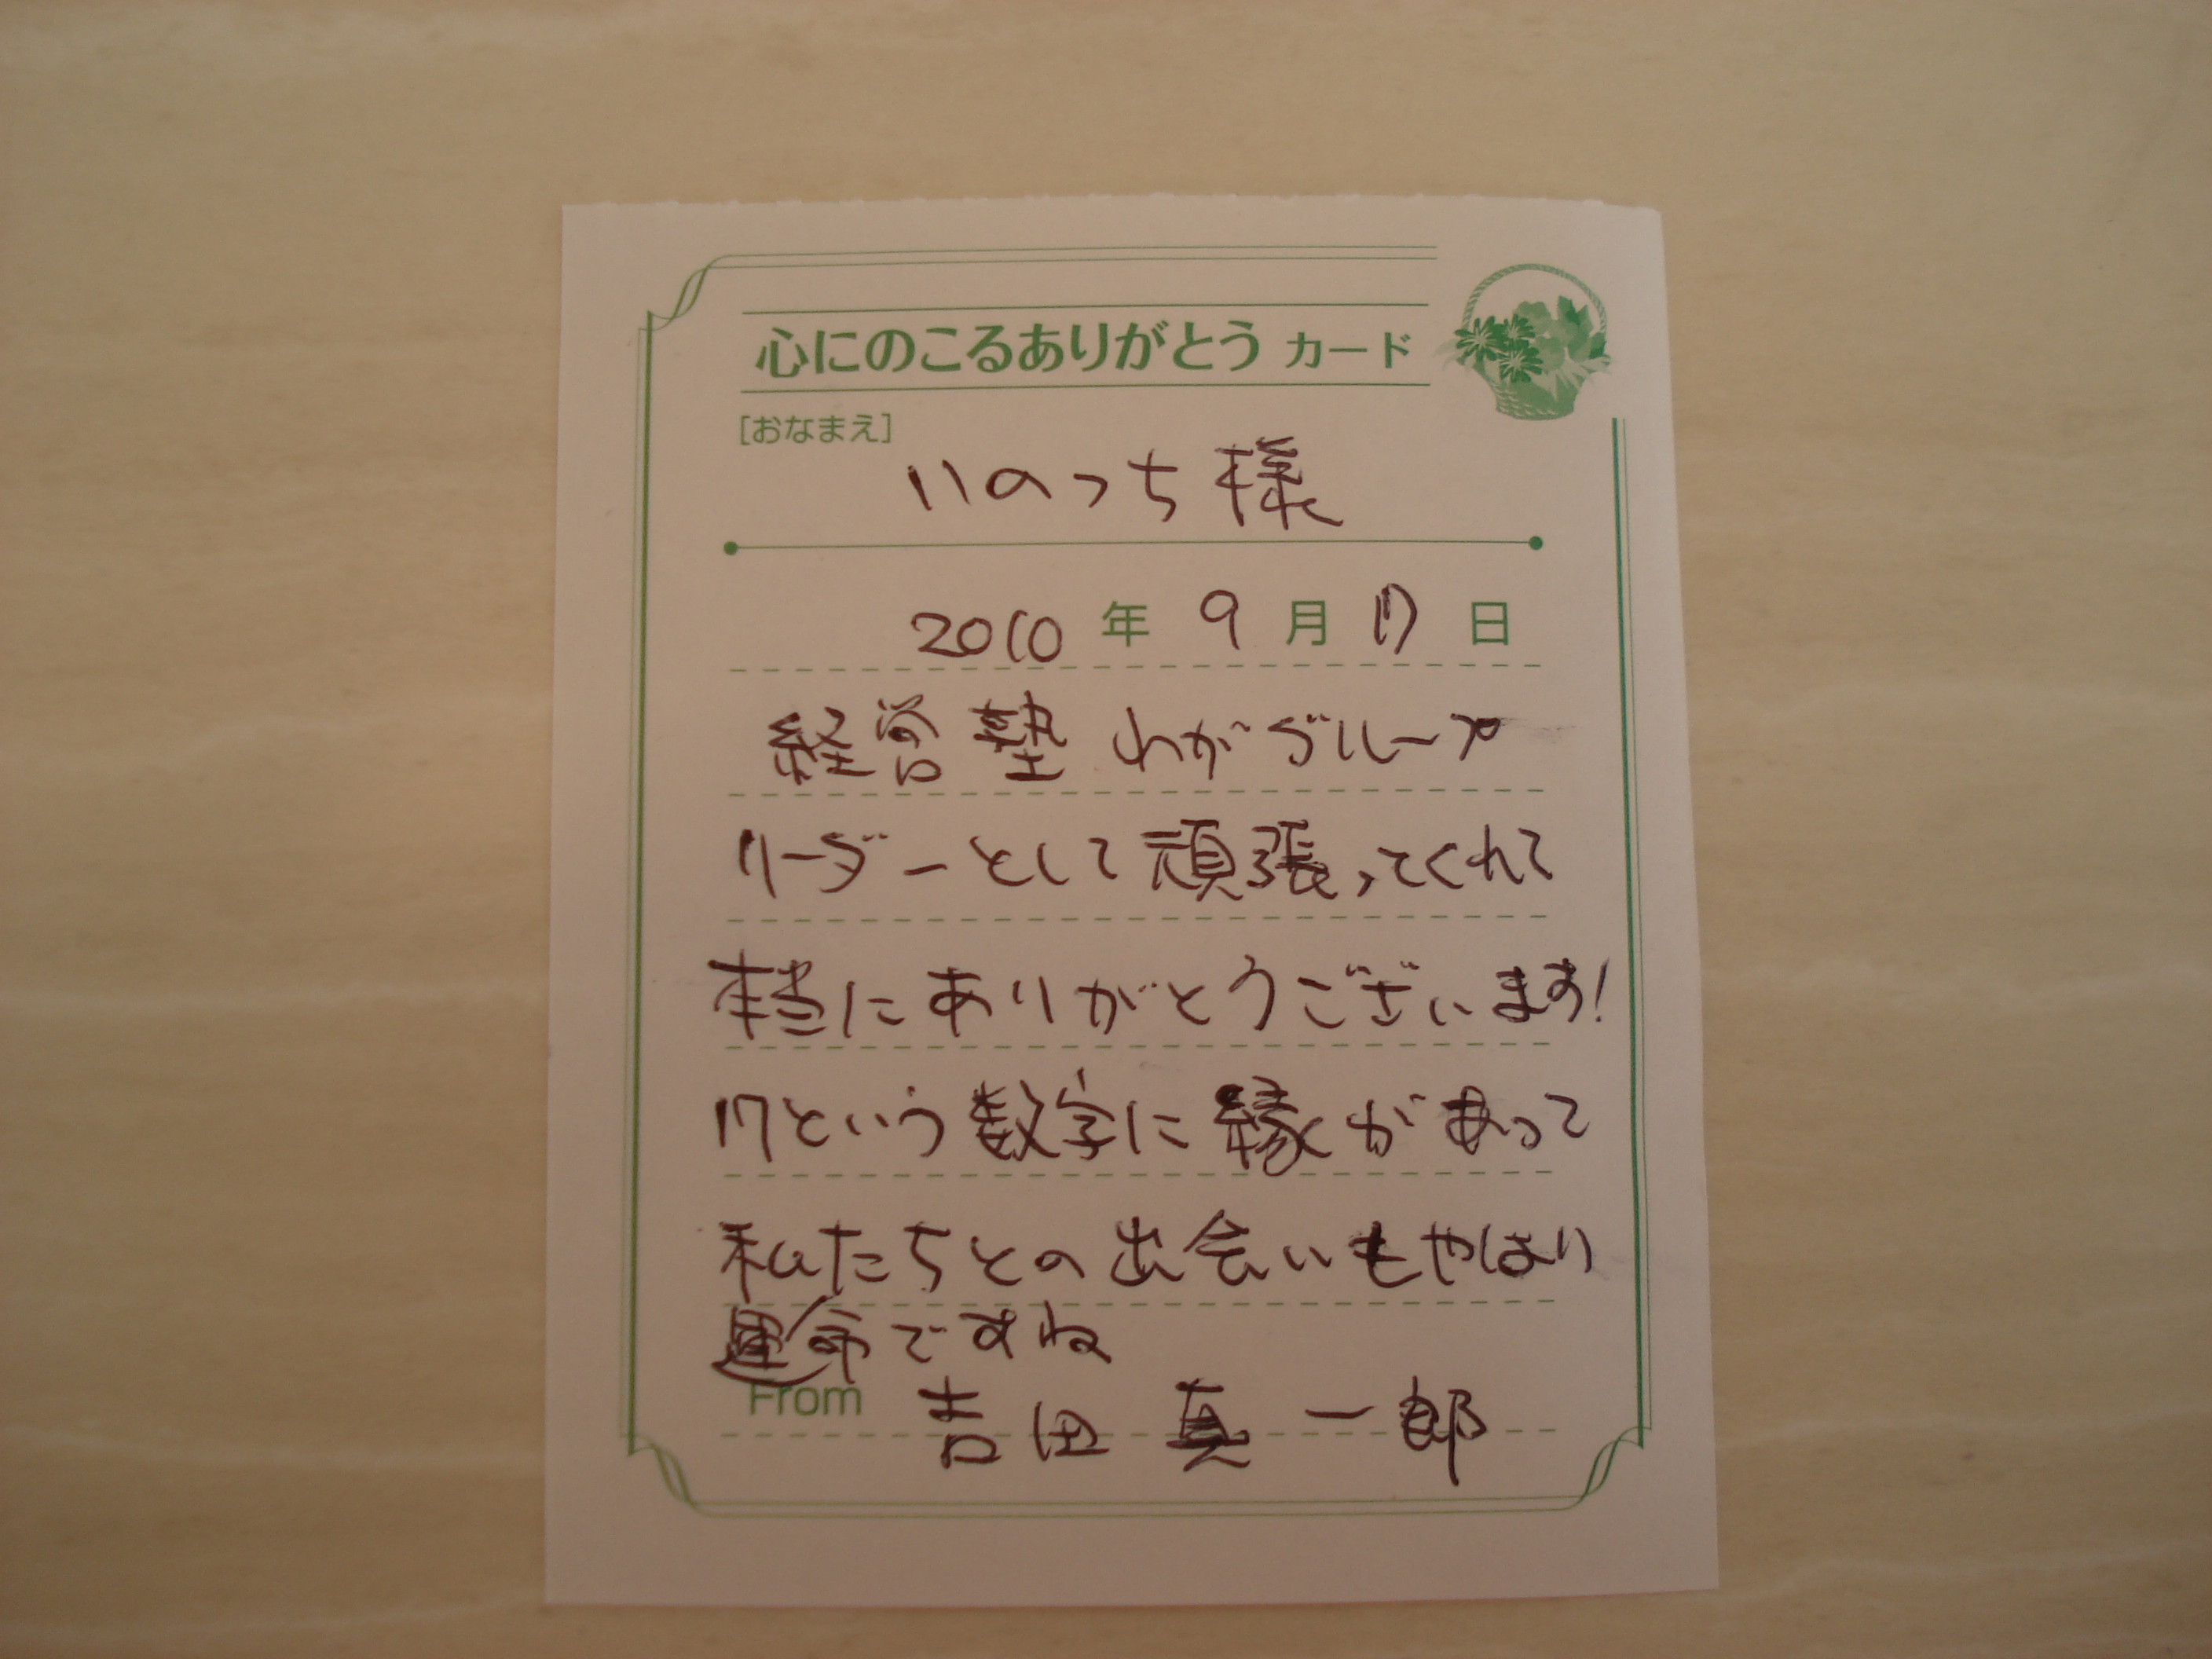 心にのこるありがとう カード
[おなまえ]
いのっち様
2010 年 9 月 17 日
経営塾 わがグループ
リーダーとして頑張ってくれて
本当にありがとうございます!
17という数字に縁があって
私たちとの出会いもやはり
運命ですね
From 吉田 真一郎